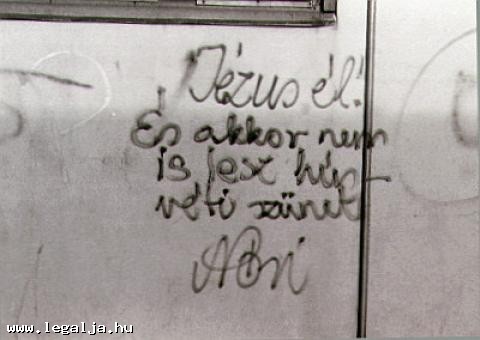 Jézus él!
És akkor nem
is lesz hús-
véti szünet
Ábri
www.legalja.hu